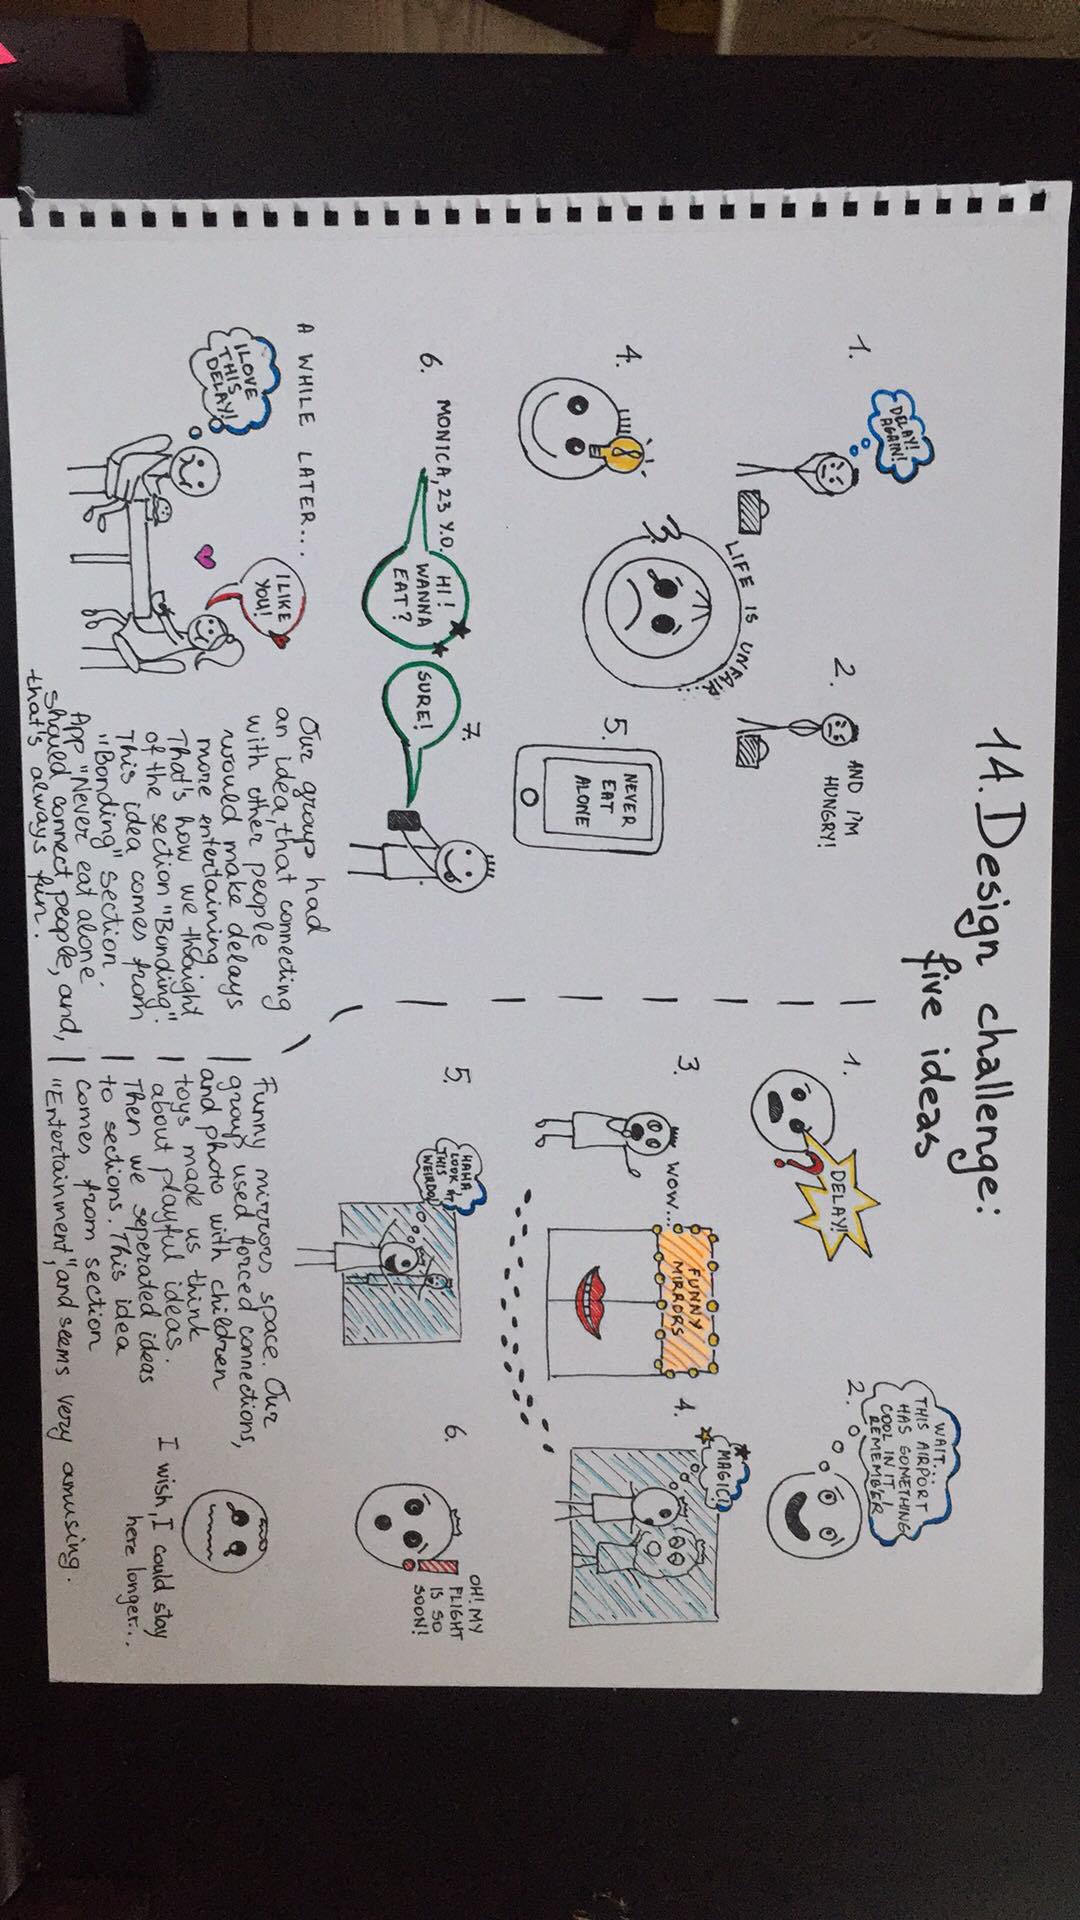 14. Design challenge:
five ideas
1.
DELAY!
AGAIN!
2.
AND I'M
HUNGRY!
3.
LIFE IS UNFAIR
4.
5.
NEVER
EAT
ALONE
6.
MONICA, 23 Y.O.
HI!
WANNA
EAT?
SURE!
7.
A WHILE LATER...
I LOVE
THIS
DELAY!
I LIKE
YOU!
Our group had
an idea, that connecting
with other people
would make delays
more entertaining.
That's how we thought
of the section "Bonding".
This idea comes from
"Bonding" section.
App "Never eat alone"
should connect people, and,
that's always fun.
1.
DELAY!
2.
WAIT...
THIS AIRPORT
HAS SOMETHING
COOL IN IT!
REMEMBER
3.
WOW...
FUNNY
MIRRORS
4.
MAGIC!
5.
HAHA
LOOK AT
THIS
WEIRDO!
6.
OH! MY
FLIGHT
IS SO
SOON!
Funny mirrors space. Our
group used forced connections,
and photo with children
toys made us think
about playful ideas.
Then we seperated ideas
to sections. This idea
comes from section
"Entertainment", and seems very amusing.
I wish, I could stay
here longer...